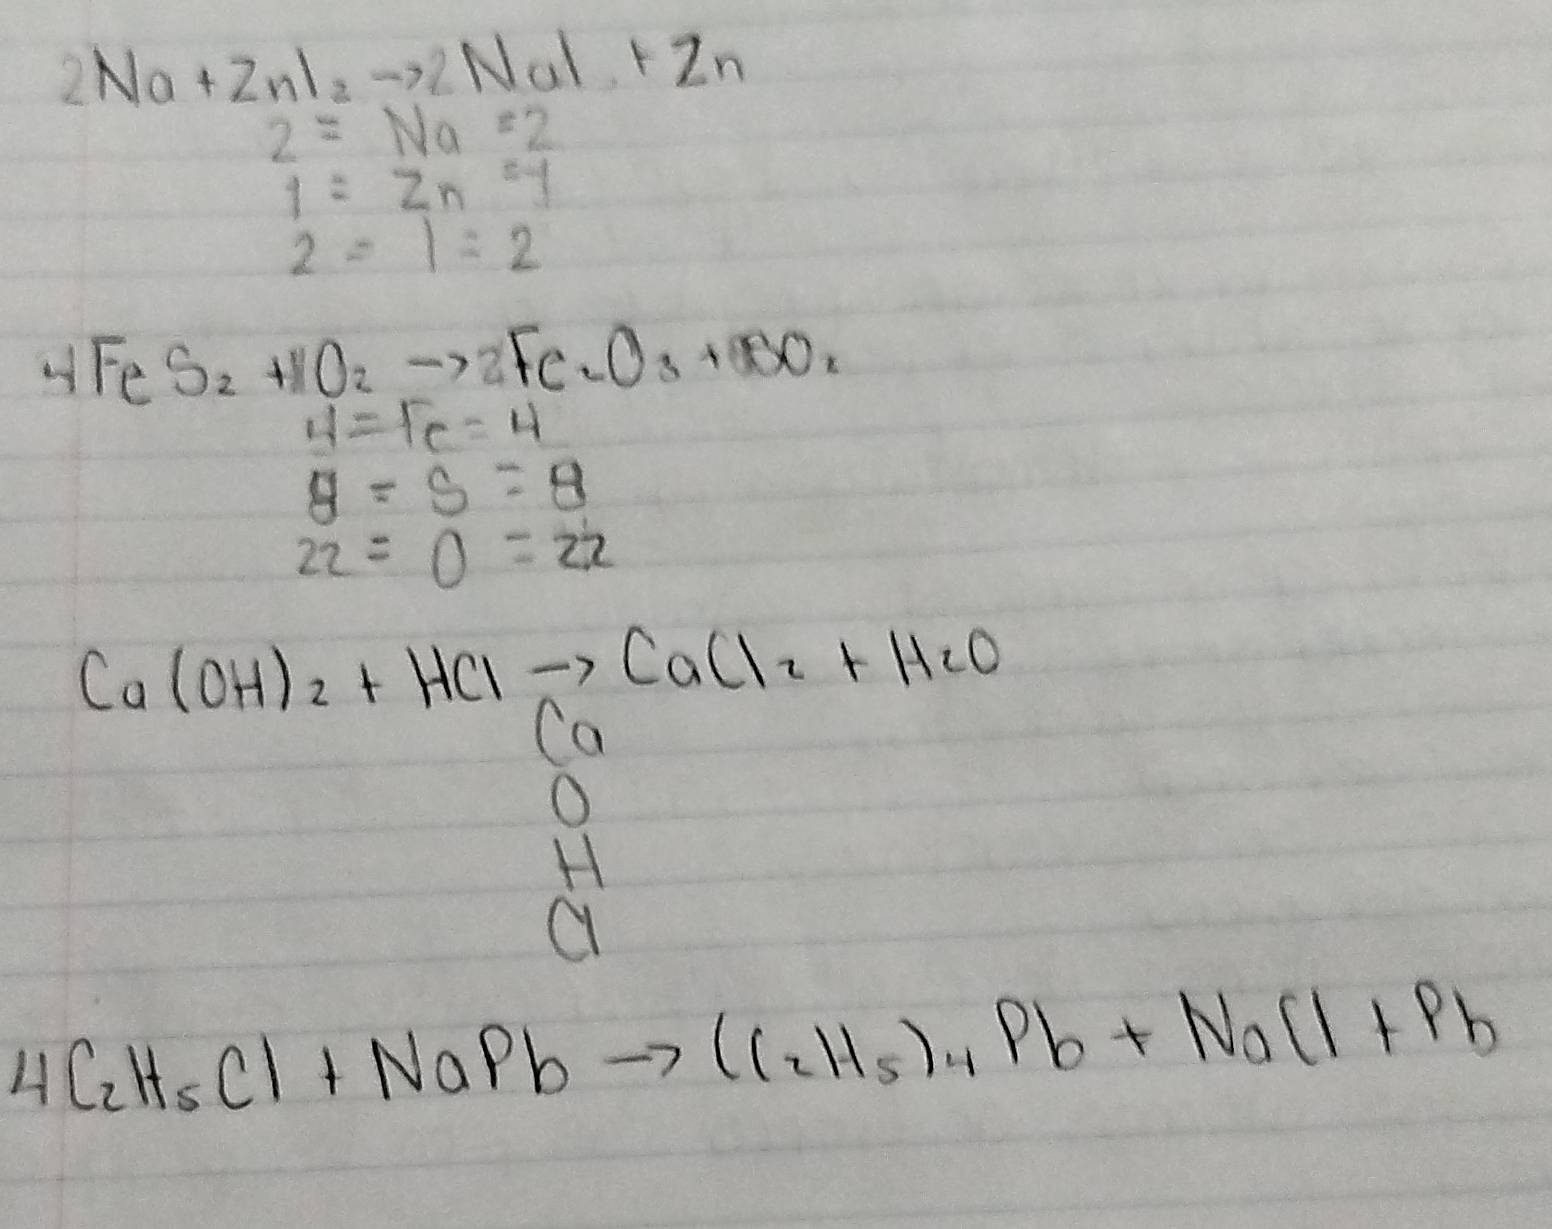 2Na + ZnI₂ → 2NaI + Zn
2 = Na = 2
1 = Zn = 1
2 = I = 2
4FeS₂ + 11O₂ → 2Fe₂O₃ + SO₂
4 = Fe = 4
8 = S = 8
22 = O = 22
Ca(OH)₂ + HCl → CaCl₂ + H₂O
Ca
O
H
Cl
4C₂H₅Cl + NaPb → (C₂H₅)₄Pb + NaCl + Pb